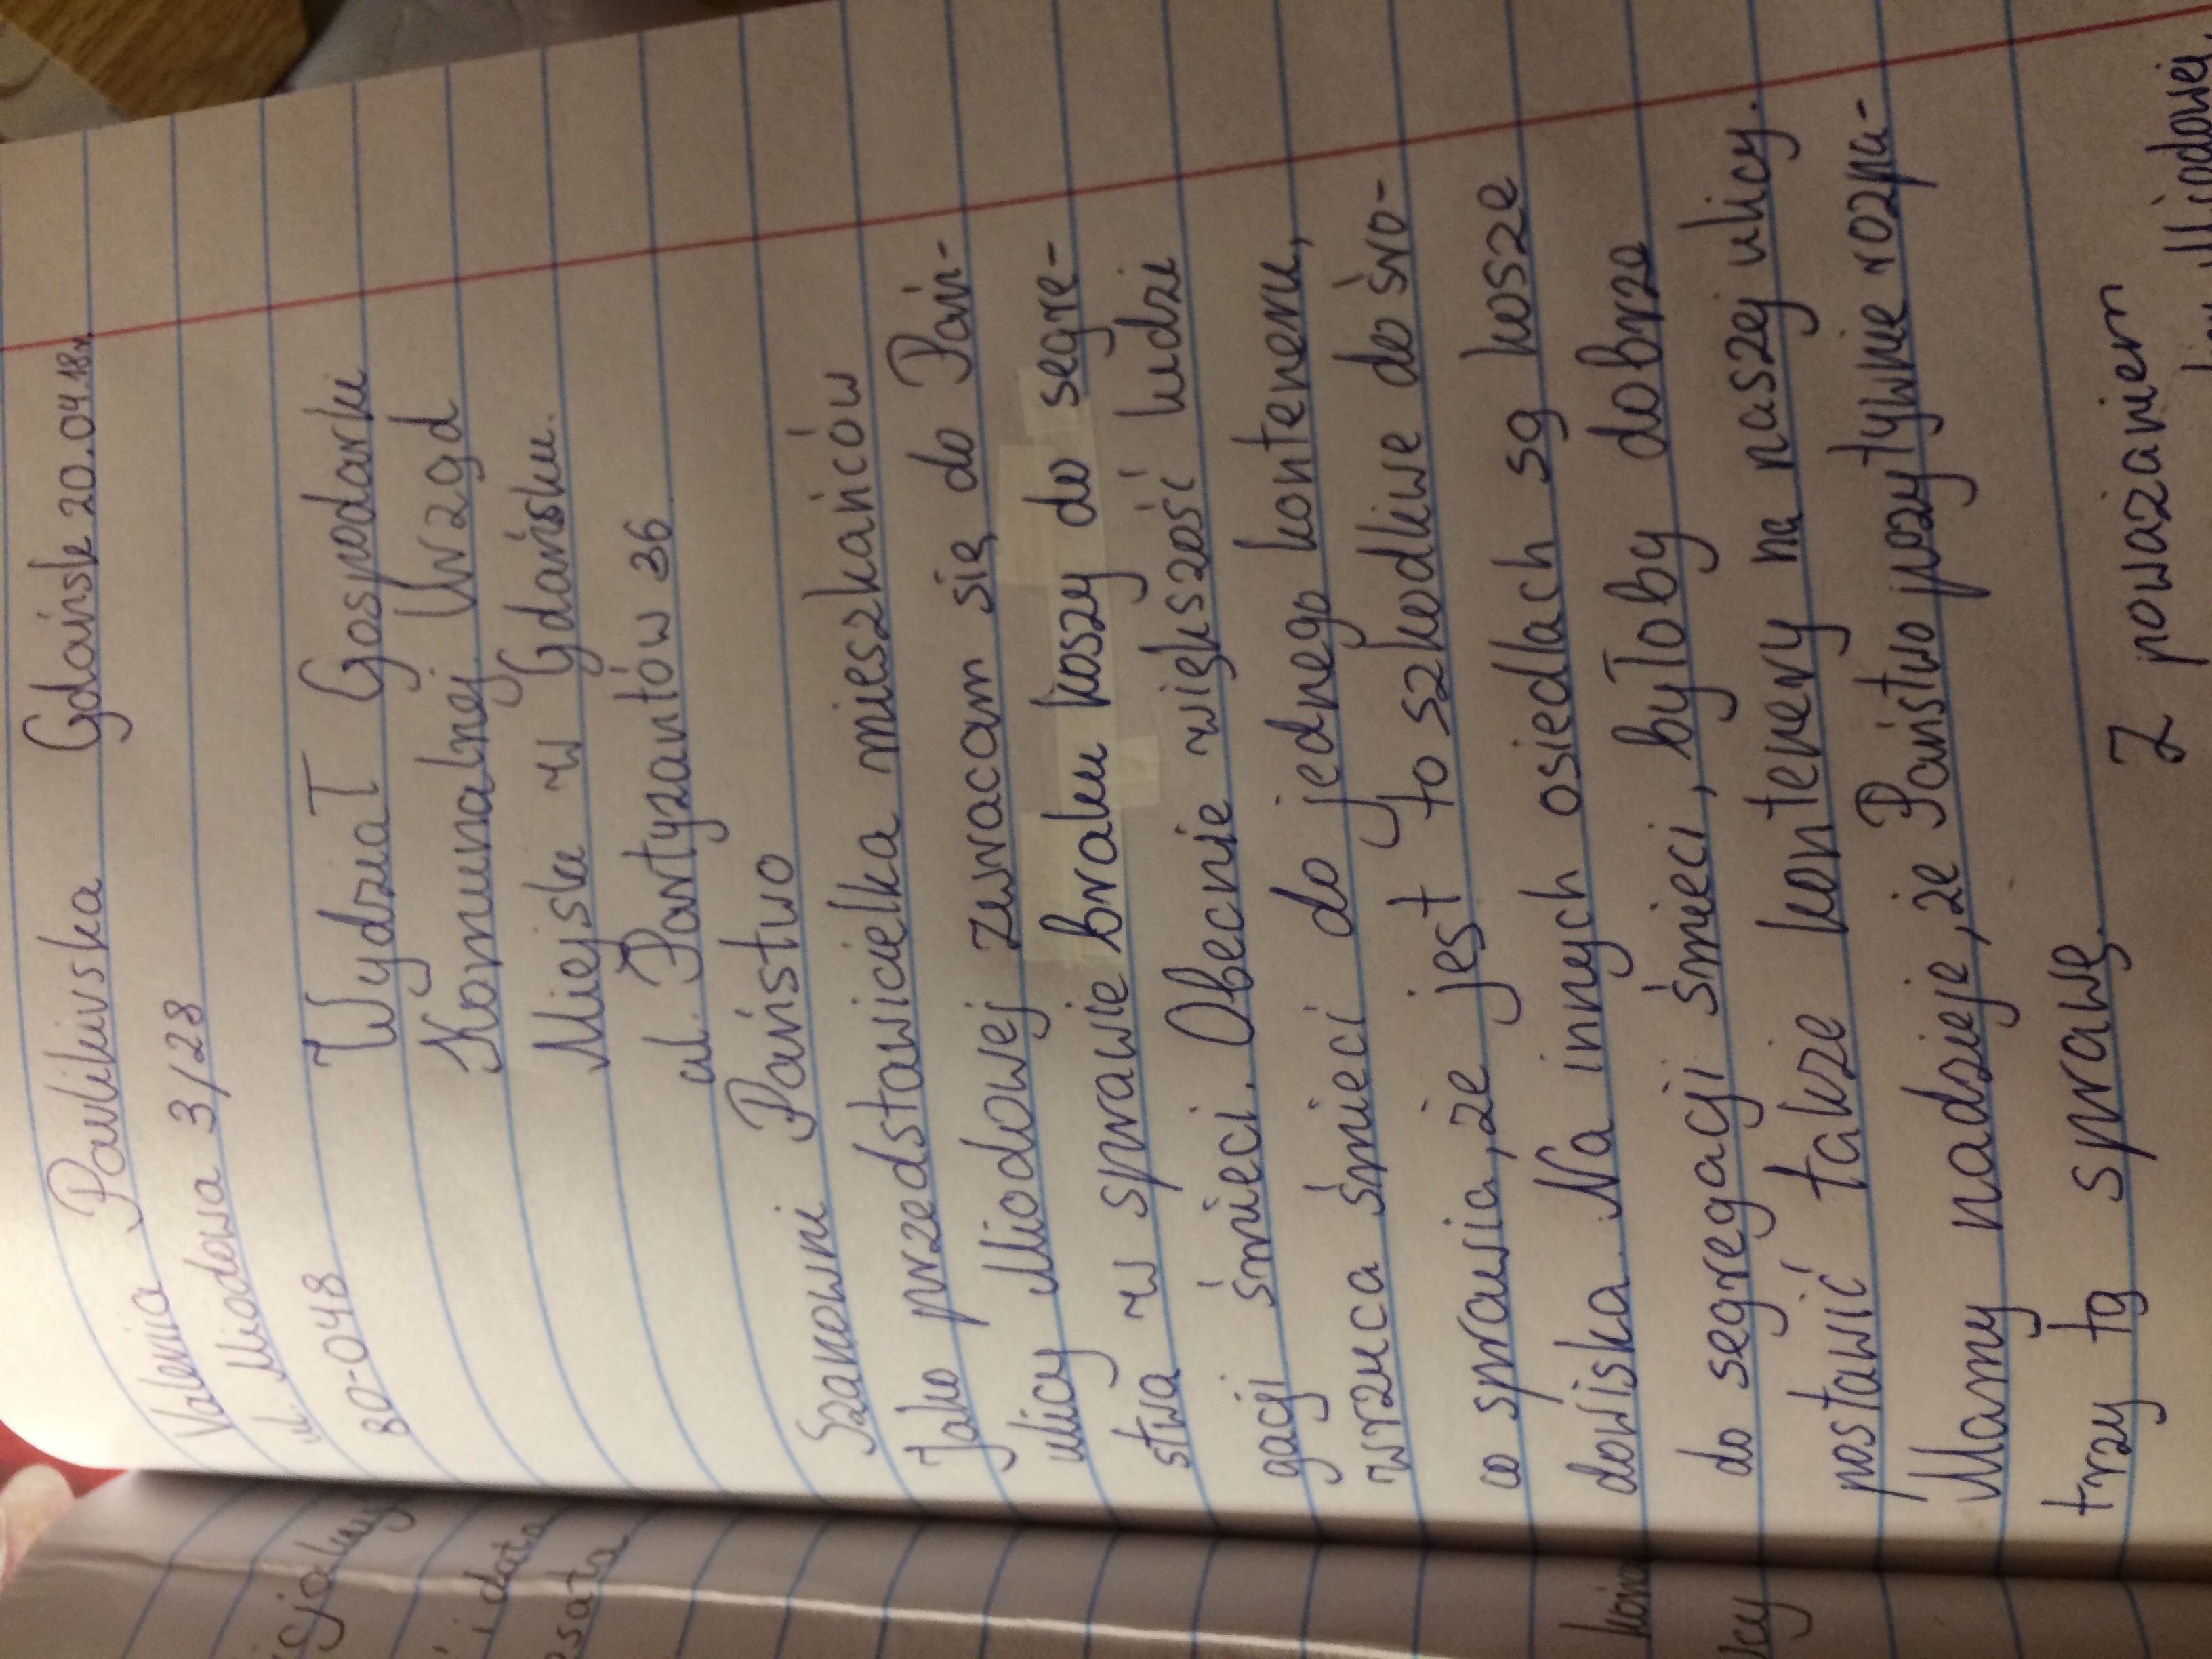 Valeriia Pavlikivska Gdańsk 20.04.18r.
ul. Miodowa 3/28
80-048
Wydział Gospodarki
Komunalnej Urząd
Miejski w Gdańsku.
ul. Partyzantów 36
Szanowni Państwo
Jako przedstawicielka mieszkańców
ulicy Miodowej zwracam się do Pań-
stwa w sprawie braku koszy do segre-
gacji śmieci. Obecnie większość ludzi
wrzuca śmieci do jednego konteneru,
co sprawia, że jest to szkodliwe do śro-
dowiska. Na innych osiedlach są kosze
do segregacji śmieci, byłoby dobrze
postawić także kontenery na naszej ulicy.
Mamy nadzieje, że Państwo pozytywnie rozpa-
trzy tą sprawę.
Z poważaniem
Miodowej.